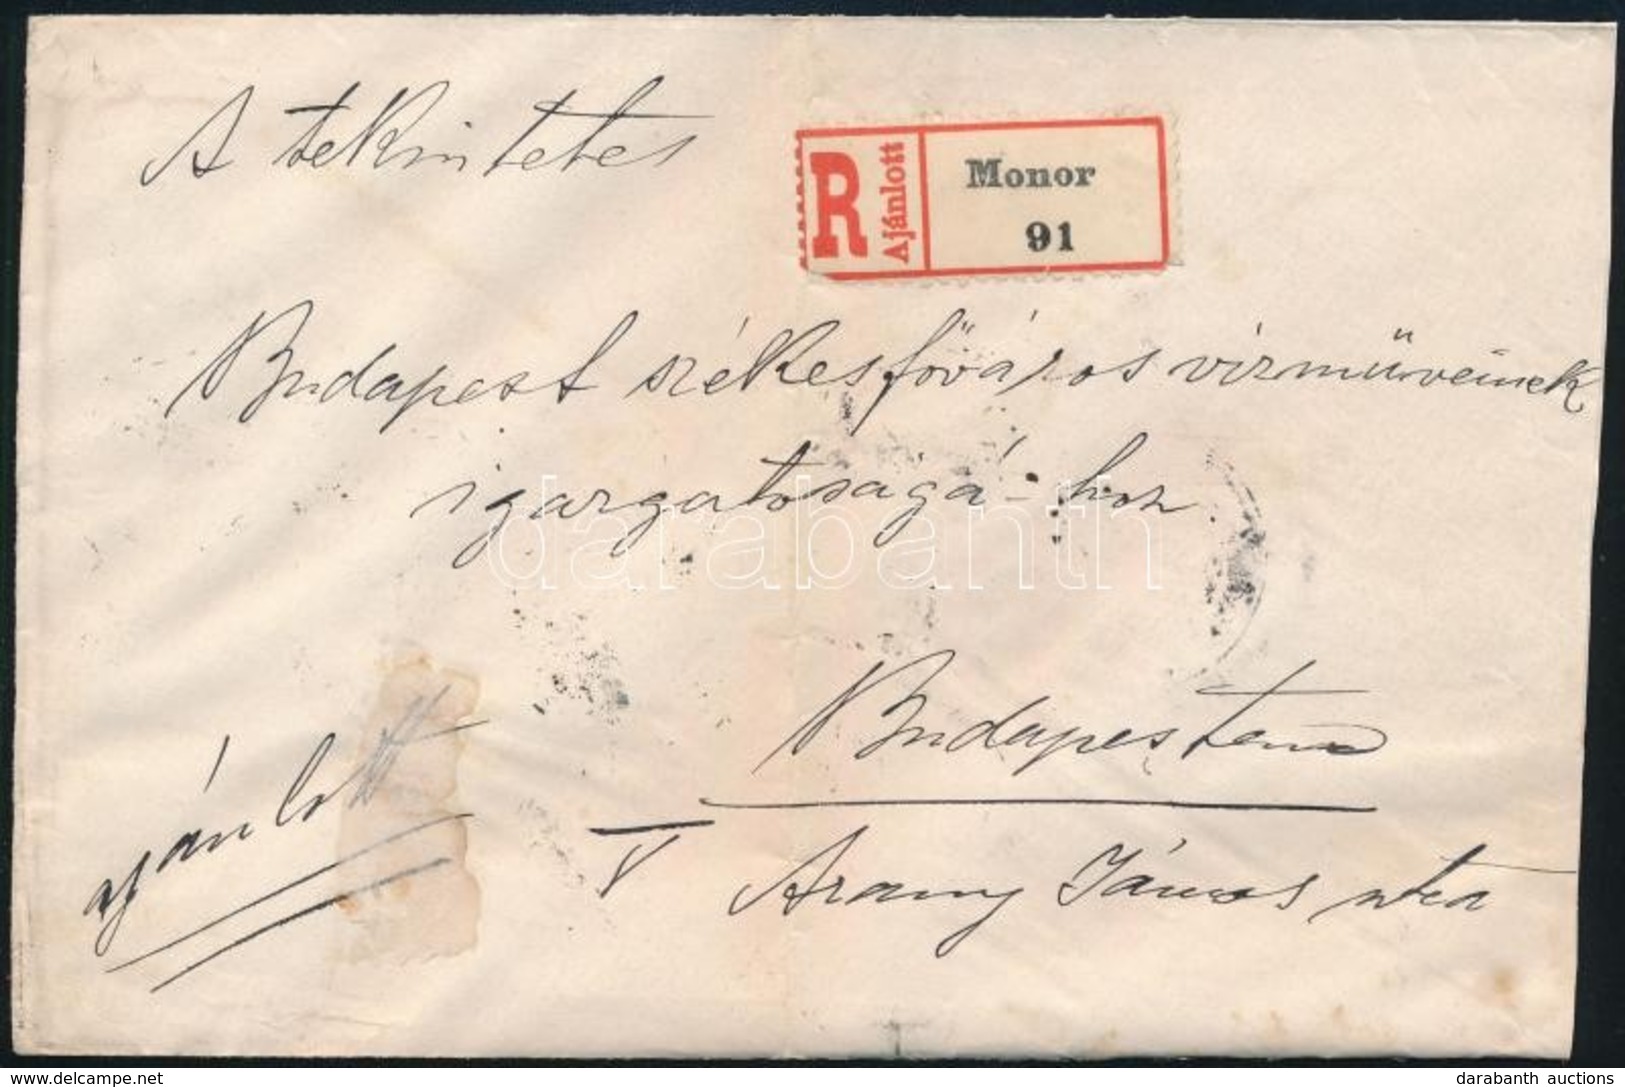 A tekintetes
R
Ajánlott
Monor
91
Budapest székesfőváros vizműveinek
igazgatósága-hoz.
darabanth
Budapesten
ajánlott
V
Arany János utca
www.delcampe.net
darabanth auctions